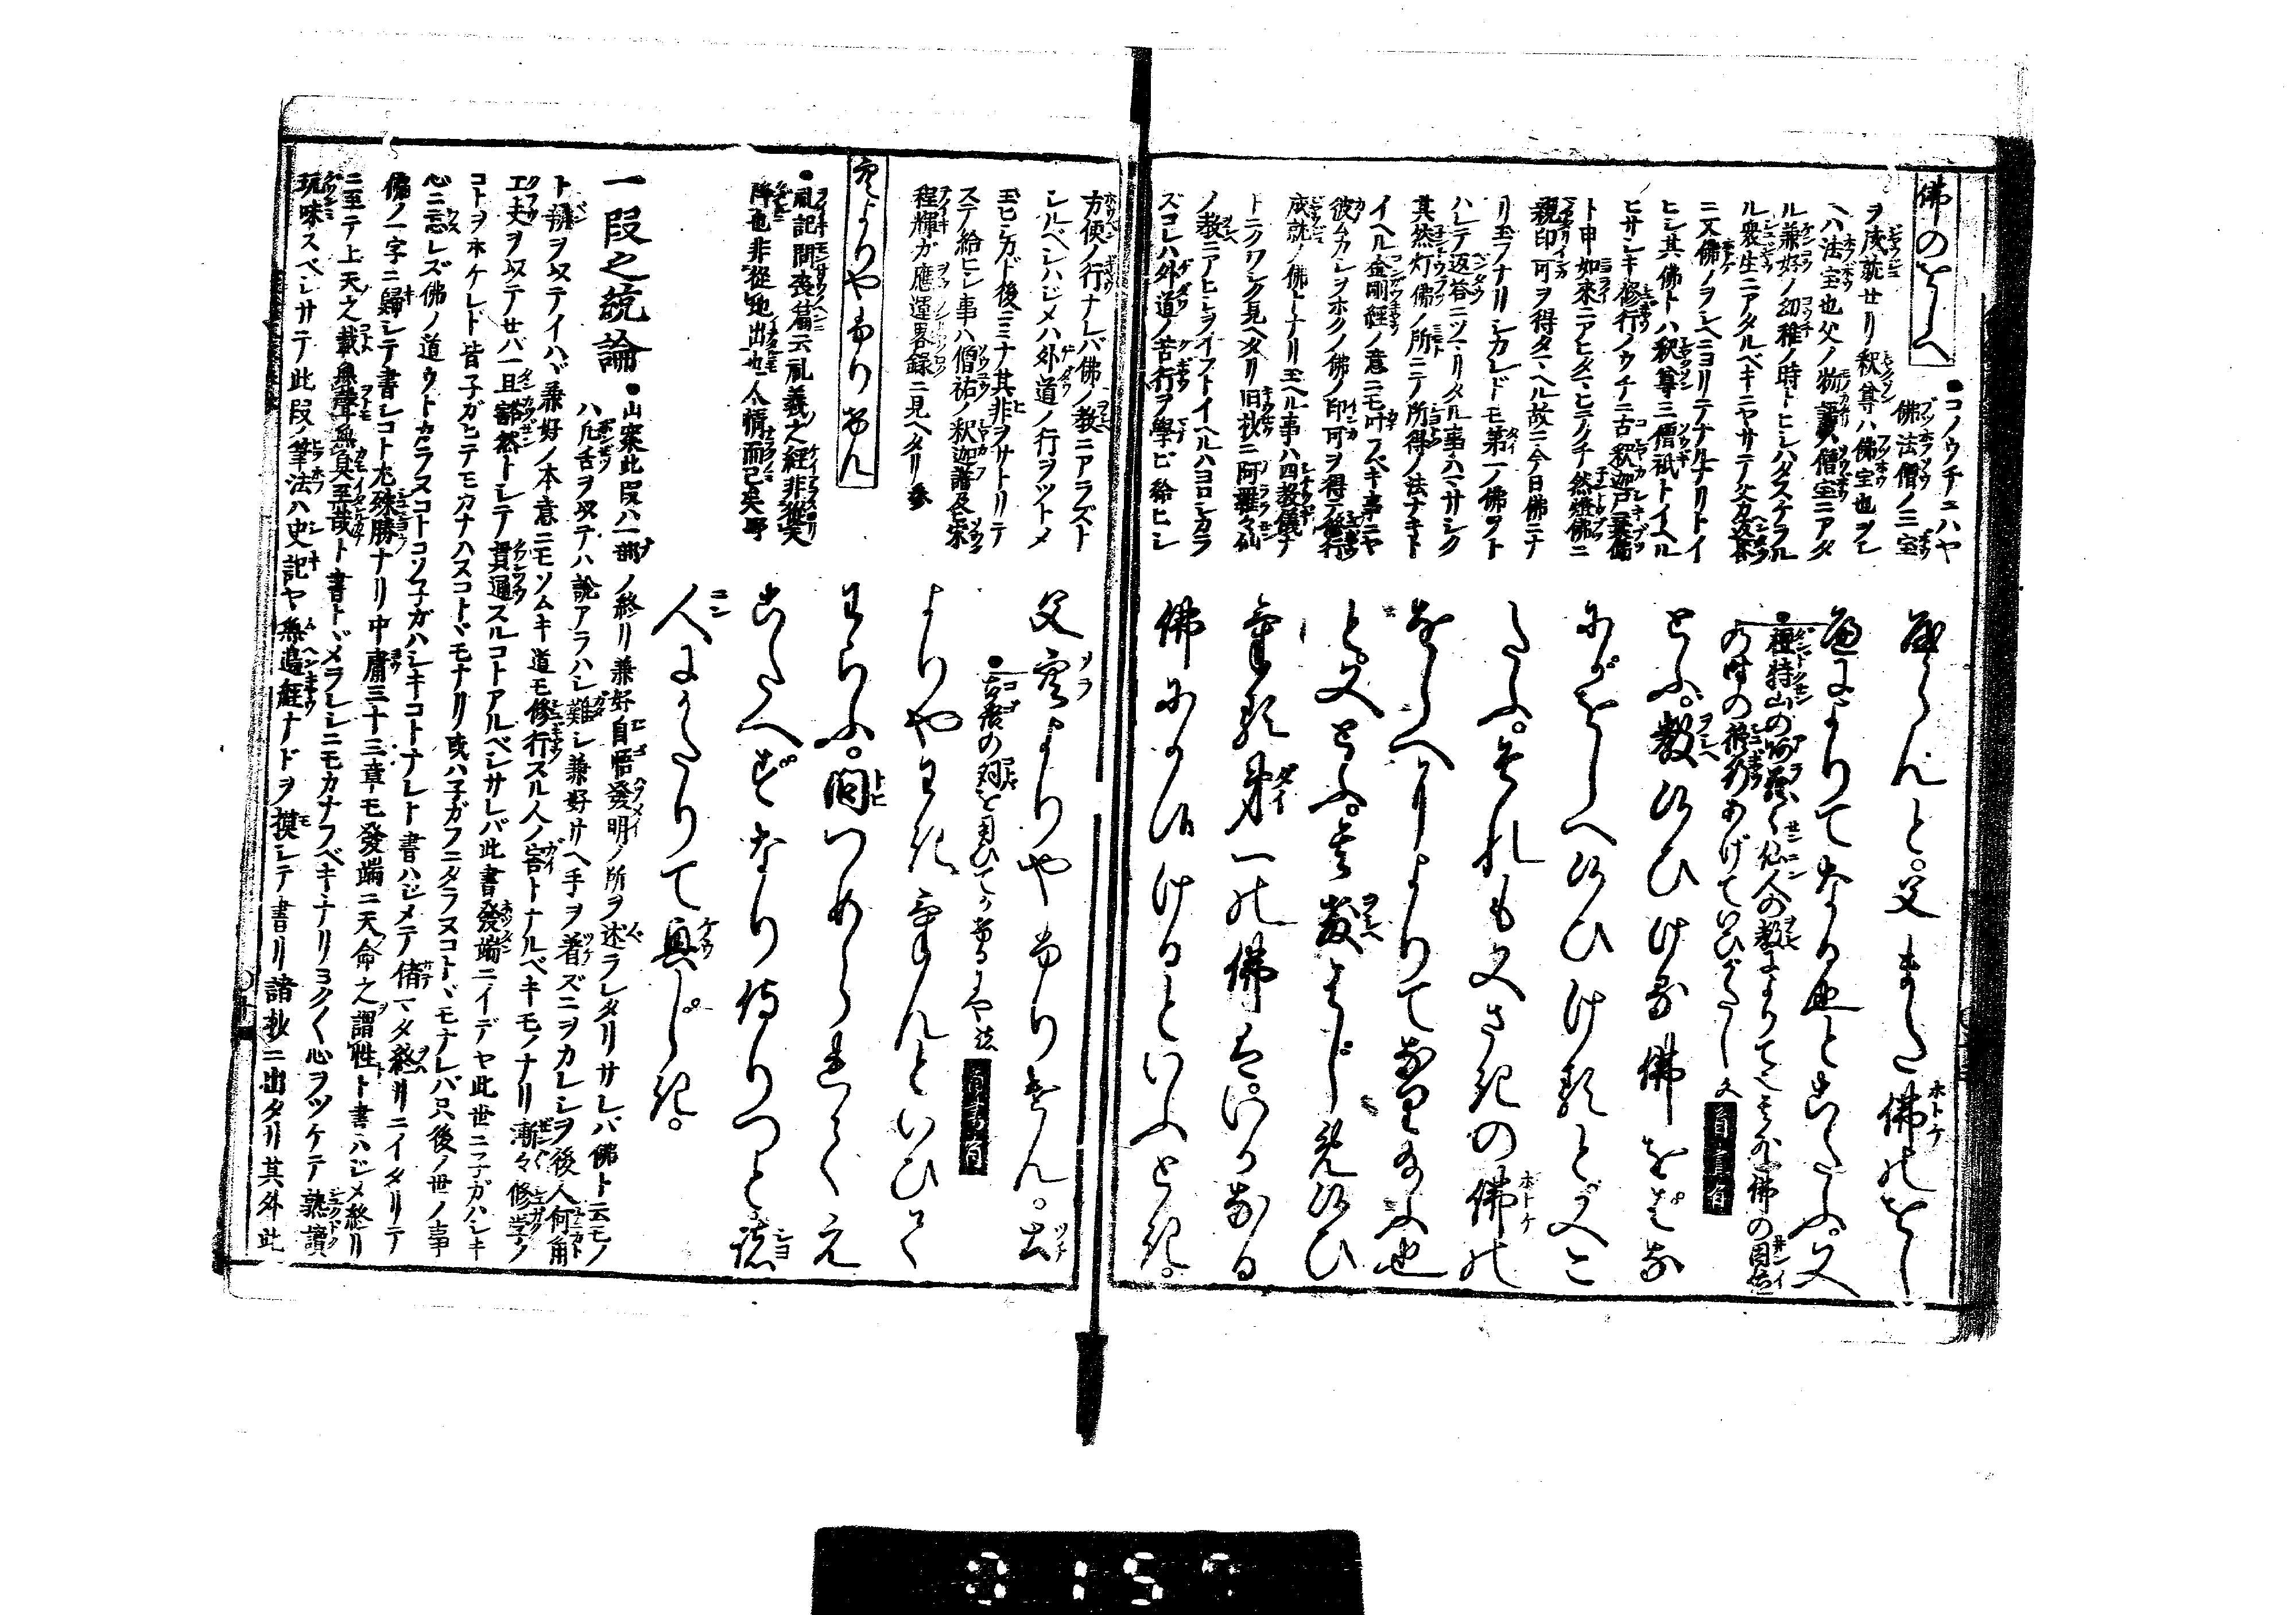 佛のをしへ
●コノウチニハヤ
佛法僧ノ三宝
ヲ成就せリ釈尊ハ佛宝也ヲシ
ヘハ法宝也父ノ物語ハ僧宝ニアタ
ル兼好ノ幼稚ノ時トヒシハダスケラル
ル衆生ニアタルベキニヤサテ父カ返答
ニ又佛ノヲシヘニヨリテナルナリトイ
ヒシ其佛トハ釈尊三僧祇トイヘル
ヒサシキ修行ノウチニ古釈迦
ト申如来ニアヒタマヒテノチ然燈佛ニ
親印可ヲ得タマヘル故ニ今日佛ニナ
リ玉フナリシカレドモ第一ノ佛ヲト
ハレテ返答ニツマリタル事ハマサシク
其然灯佛ノ所ニテ所得ノ法ナキト
イヘル金剛經ノ意ニモ叶フベキ事ニヤ
彼ムカシヲホクノ佛ノ印可ヲ得テ修行
成就ノ佛トナリ玉ヘル事ハ四教儀ナ
トニクワシク見ヘタリ旧抄ニ阿羅々仙
ノ教ニアヒシヲイフトイヘルハヨロシカラ
ズコレハ外道ノ苦行ヲ學ビ給ヒシ
候らんと。父また佛のをし
へによりてなる也とこたふ。又
●檀特山の阿羅々仙人の教によりて也其外佛の因位
の時の修行あげていひがたし
とふ。教候ひける佛をばな
にがをしへ候ひけるとまたこ
たふ。それも又さきの佛の
をしへによりてなり給ふ也
と。又とふ。其教はじめ候ひ
ける第一の佛は。いかなる
佛にか候けるといふとき。
方便ノ行ナレバ佛ノ教ニアラズト
シルベシハジメハ外道ノ行ヲツトメ
玉ヒシカド後ニ三ナ其非ヲサトリテ
ステ給ヒシ事ハ僧祐ノ釈迦譜及宋
程輝ガ應運畧録ニ見ヘタリ
空よりやふりけん
●礼記問喪篇云礼義之經非從天
降也非從地出也人情而已矣
父空よりやふりけん。土
●
よりやわきけんといひて
わらふ。問つめられてえ
こたへずなり侍りつと諸
人にかたりて興じき。
一段之統論
●山案此段ハ一部ノ終リ兼好自悟發明ノ所ヲ述ラレタリサレバ佛ト云モノ
ハ凡舌ヲ以テハ説アラハシ難シ兼好サヘ手ヲ着ズニヲカレシヲ後人何角
ト辯ヲ以テイハヾ兼好ノ本意ニモソムキ道モ修行スル人ノ害トナルベキモノナリ漸々修学ノ
エ夫ヲ以テせバ一旦豁然トシテ貫通スルコトアルベシサレバ此書發端ニイデヤ此世ニ子ガハシキ
コトヲホケレド皆子ガヒテモカナハヌコトヾモナリ或ハ子ガフニタラヌコトヾモナレバ只後ノ世ノ事
心ニ忘レズ佛ノ道ウトカラヌコトコソ子ガハシキコトナレト書ハジメテ偖マタ終リニイタリテ
佛ノ一字ニ歸シテ書シコト尤殊勝ナリ中庸三十三章モ發端ニ天命之謂性ト書ハジメ終リ
ニ至テ上天之載無聲無臭至哉ト書トヾメラレシニモカナフベキナリヨク〱心ヲツケテ熟讀
玩味スベシサテ此段ノ筆法ハ史記ヤ無邊經ナドヲ摸シテ書リ諸抄ニ出タリ其外此